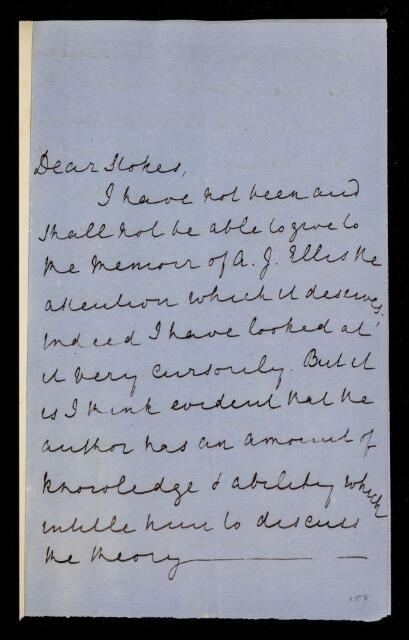 Dear Stokes,
I have not been and
shall not be able to give to
the Memoir of A. J. Ellis the
attention which it deserves.
Indeed I have looked at
it very cursorily. But it
is I think evident that the
author has an amount of
knowledge & ability which
intitle him to discuss
the theory